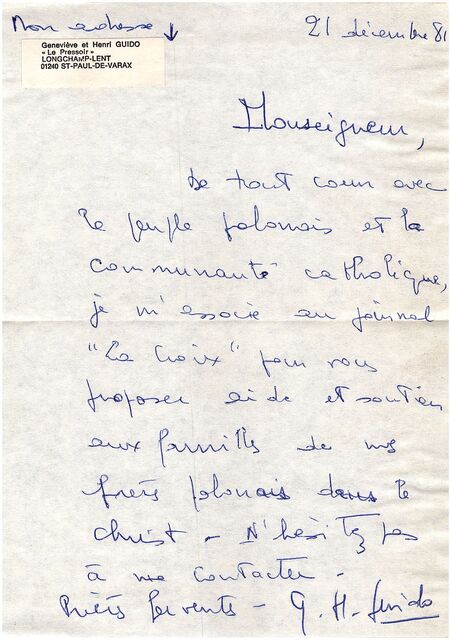 Mon adresse
Geneviève et Henri GUIDO
« Le Pressoir »
LONGCHAMP-LENT
01240 ST-PAUL-DE-VARAX
21 décembre 81
Monseigneur,
De tout coeur avec
le peuple polonais et la
communauté catholique,
je m'associe au journal
"La Croix" pour vous
proposer aide et soutien
aux familles de nos
frères polonais dans le
Christ - N'hésitez pas
à me contacter -
Prières ferventes - G. H. Guido